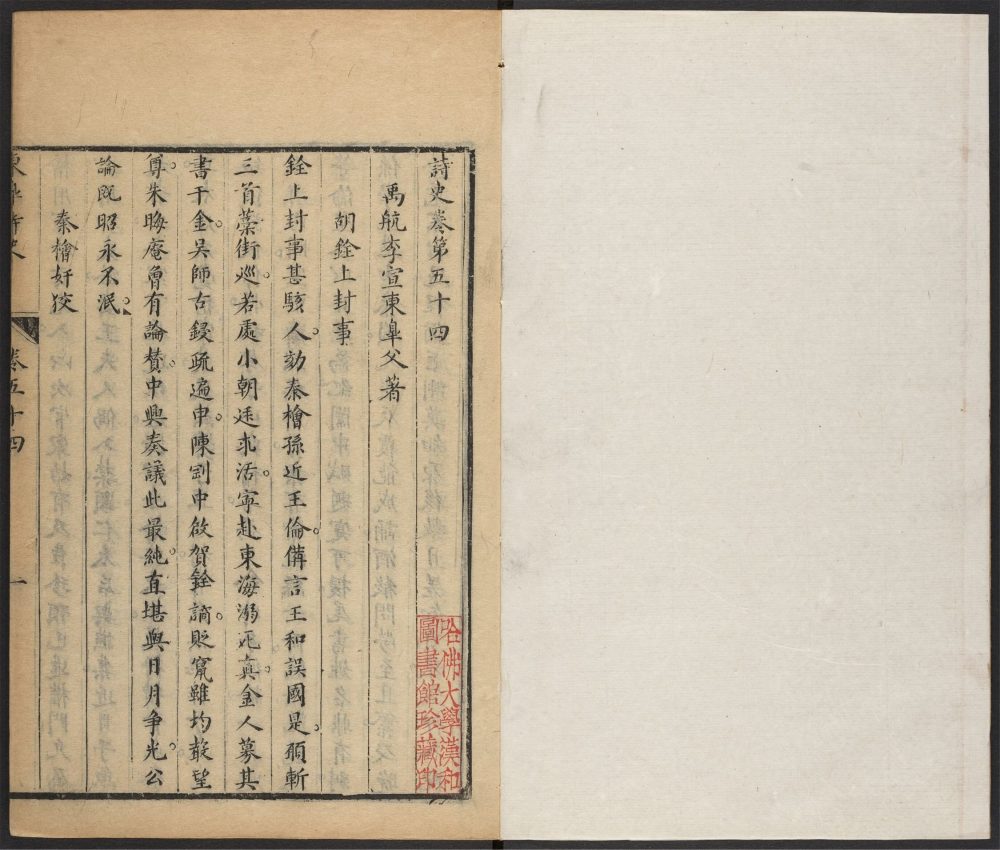 詩史卷第五十四
禹航李宣東皐父著
胡銓上封事
銓上封事甚駭人。劾秦檜孫近王倫。倡言王和誤國是。願斬
三首藁街巡。若處小朝廷求活。寧赴東海溺死真。金人募其
書于金。吳師古鋟疏遍申。陳剛中啟賀銓謫。貶竄雖均聳望
尊。朱晦庵曾有論贊。中興奏議此最純。直堪與日月争光。公
論既昭永不泯。
秦檜奸狡
卷五十四
一
哈佛大學漢和
圖書館珍藏印